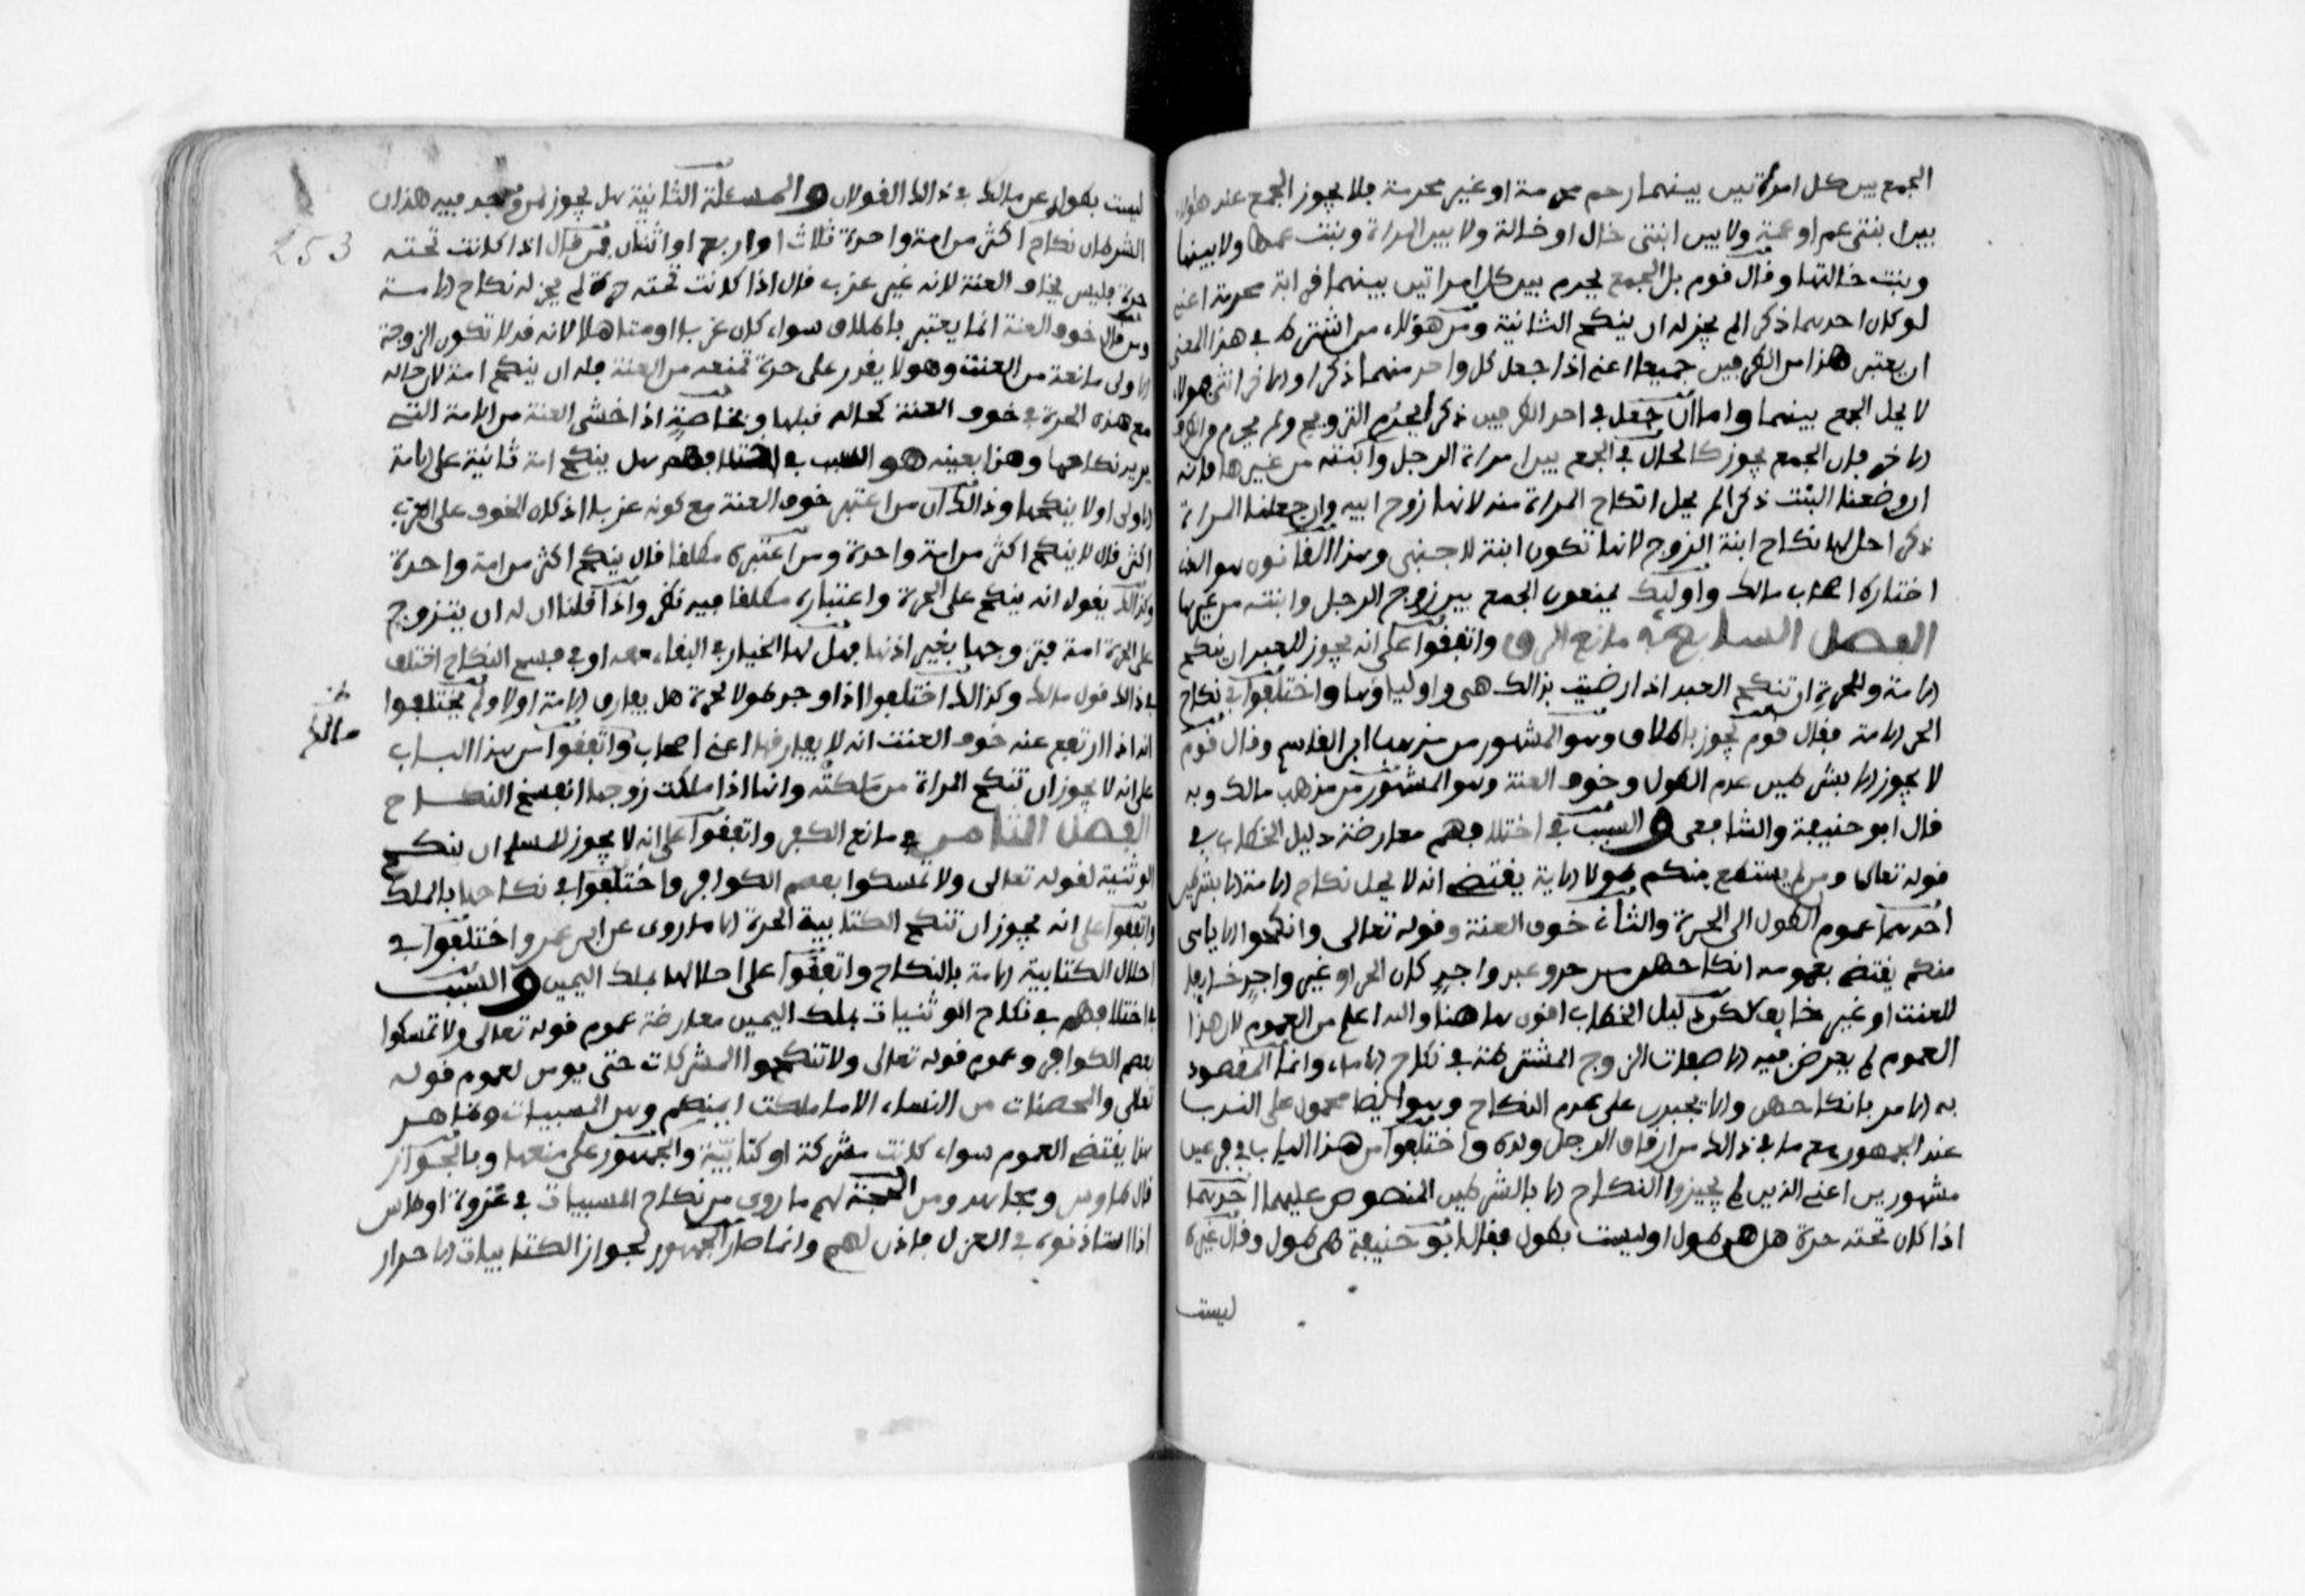 الجمع بين كل امرأتين بينهما رحم محرمة او غير محرمة فلا يجوز الجمع عند هؤلاء
بين ابنتى عم او عمة ولا بين ابنتى خال او خالة ولا بين المراة وبنت عمها ولا بينها
وبنت خالتها وقال قوم بل الجمع يحرم بين كل امراتين بينهما قرابة محرمة اعنى
لو كان احدهما ذكرا لم يجز له ان ينكح الثانية ومن هؤلاء من اشترط في هذا المعنى
ان يعتبر هذا من الطرفين جميعا اعنى اذا جعل كل واحد منهما ذكرا والاخر انثى فهولاء
لا يحل الجمع بينهما واما ان جعل في احد الطرفين ذكرا يحرم التزويج ولم يحرم من الطرف
الاخر فان الجمع يجوز كالحال في الجمع بين امراة الرجل وابنته من غيرها فانه
ان وضعنا البنت ذكرا لم يحل انكاح المراة منه لانها زوج ابيه وان جعلنا المراة
ذكرا حل لها نكاح ابنة الزوج لانها تكون ابنة لاجنبى وهذا القانون هو الذى
اختاره اصحاب مالك واوليك يمنعون الجمع بين زوج الرجل وابنته من غيرها
الفصل السابع في مانع الرق واتفقوا على انه يجوز للعبد ان ينكح
الامة وللحرة ان تنكح العبد اذا رضيت بذالك هى واولياوها واختلفوا في نكاح
الحر الامة فقال قوم يجوز باطلاق وهو المشهور من مذهب ابن القاسم وقال قوم
لا يجوز الا بشرطين عدم الطول وخوف العنت وهو المشهور من مذهب مالك وبه
قال ابو حنيفة والشافعى والسبب في اختلافهم معارضة دليل الخطاب في
قوله تعالى ومن لم يستطع منكم طولا الاية يقتضى انه لا يحل نكاح الامة الا بشرطين
احدهما عموم الطول الى الحرة والثانى خوف العنت وقوله تعالى وانكحوا الايامى
منكم يقتضى بعمومه انكاحهن من حر وعبد واجد كان الحر او غير واجد خايفا
للعنت او غير خايف لكن دليل الخطاب اقوى هاهنا والله اعلم من العموم لان هذا
العموم لم يعرض فيه الى صفات الزوج المشترطة في نكاح الاماء وانما المقصود
به الامر بانكاحهن والا يجبرن على عدم النكاح وهو ايضا محمول على الندب
عند الجمهور مع ما في ذالك من ارقاق الرجل ولده واختلفوا من هذا الباب في فرعين
مشهورين اعنى الذين لم يجيزوا النكاح الا بالشرطين المنصوص عليهما احدهما
اذا كان تحته حرة هل هى طول او ليست بطول فقال ابو حنيفة هى طول وقال غيره
ليست
ليست بطول وعن مالك في ذالك القولان والمسئلة الثانية هل يجوز لمن وجد فيه هذان
الشرطان نكاح اكثر من امة واحدة ثلاث او اربع او اثنتان فمن قال اذا كانت تحته
حرة فليس يخاف العنت لانه غير عزب قال اذا كانت تحته حرة لم يجز له نكاح الامة
ومن قال خوف العنت انما يعتبر باطلاق سواء كان عزبا او متاهلا لانه قد لا تكون الزوجة
الاولى مانعة من العنت وهو لا يقدر على حرة تمنعه من العنت فله ان ينكح امة لان حاله
مع هذه الحرة في خوف العنت كحاله قبلها وبخاصة اذا خشى العنت من الامة التى
يريد نكاحها وهذا بعينه هو السبب في اختلافهم هل ينكح امة ثانية على الامة
الاولى او لا ينكحها وذالك ان من اعتبر خوف العنت مع كونه عزبا اذ كان الخوف على العزب
اكثر قال لا ينكح اكثر من امة واحدة ومن اعتبره مطلقا قال ينكح اكثر من امة واحدة
وكذالك يقول انه ينكح على الحرة واعتباره مطلقا فيه نظر واذا قلنا ان له ان يتزوج
على الحرة امة فتزوجها بغير اذنها فهل لها الخيار في البقاء معه او في فسخ النكاح اختلف
في ذالك قول مالك وكذالك اختلفوا اذا وجد طولا لحرة هل يفارق الامة او لا ولم يختلفوا
انه اذا ارتفع عنه خوف العنت انه لا يفارقها اعنى اصحاب واتفقوا من هذا الباب
على انه لا يجوز ان تنكح المراة من ملكته وانها اذا ملكت زوجها انفسخ النكاح
الفصل الثامن في مانع الكفر واتفقوا على انه لا يجوز للمسلم ان ينكح
الوثنية لقوله تعالى ولا تمسكوا بعصم الكوافر واختلفوا في نكاحها بالملك
واتفقوا على انه يجوز ان تنكح الكتابية الحرة الا ما روى عن ابن عمر واختلفوا في
احلال الكتابية الامة بالنكاح واتفقوا على احلالها بملك اليمين والسبب
في اختلافهم في نكاح الوثنيات بملك اليمين معارضة عموم قوله تعالى ولا تمسكوا
بعصم الكوافر وعموم قوله تعالى ولا تنكحوا المشركات حتى يومن لعموم قوله
تعالى والمحصنات من النساء الا ما ملكت ايمنكم وهن المسبيات وظاهر
هذا يقتضى العموم سواء كانت مشركة او كتابية والجمهور على منعها وبالجواز
قال طاوس ومجاهد ومن الحجة لهم ما روى من نكاح المسبيات في غزوة اوطاس
اذ استاذنوه في العزل فاذن لهم وانما صار الجمهور لجواز الكتابيات الاحرار
مالك
253